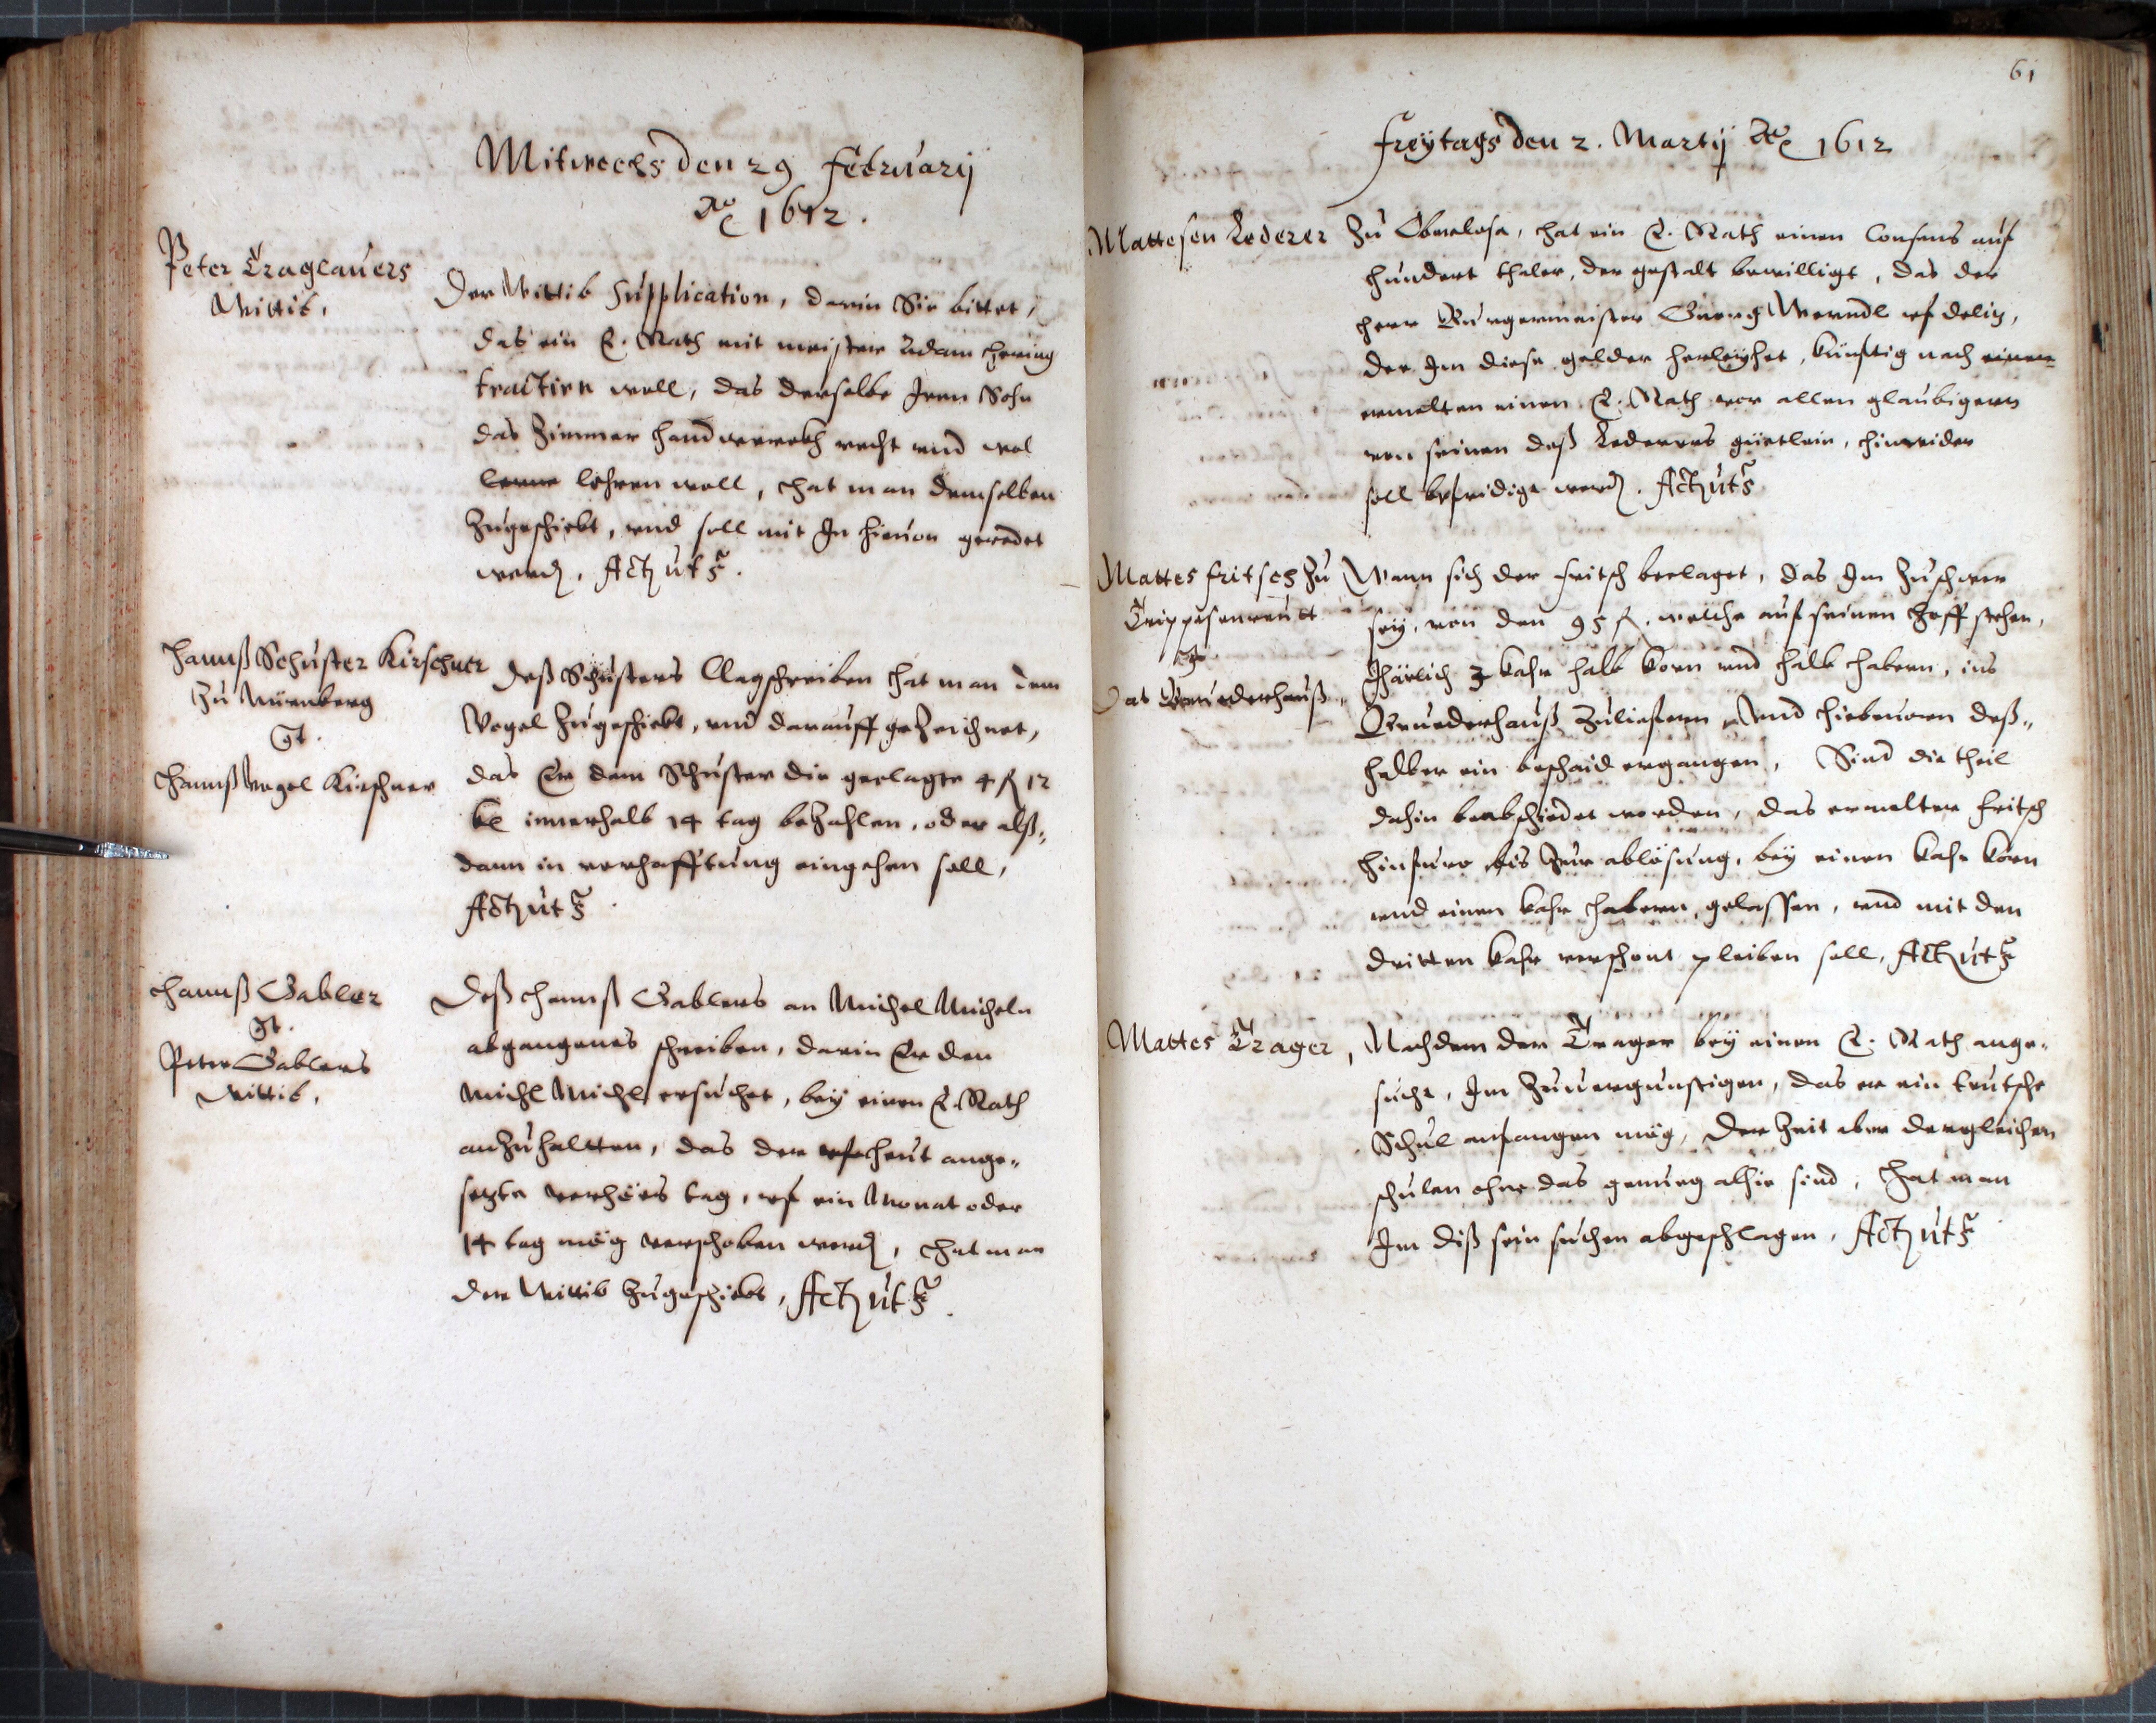 Mitwochs den 29 Februarij
Ao 1612.
Peter Traglauers
Wittib,
Der Wittib Supplication, darin Sie bittet,
das ein E. Rath mit meister Adam Hering
tractirn woll, das derselbe Iren Sohn
das Zimmer handwerckh recht und wol
lerne lehren woll, hat man demselben
Zugeschickt, und soll mit Im hieuon geredet
werd. Act ut s.
Hannß Schuster Kirschner
Zu Nürnberg
Ct.
Hannß Vogel Kirschner
Deß Schusters Clagschreiben hat man dem
Vogel Zugeschickt, und darauff geZeichnet,
das Er dem Schuster die geclagte 4 fl 12
kr innerhalb 14 tag beZahlen, oder alß-
dann in verhafftung eingehen soll,
Act ut s.
Hannß Gabler
Ct.
Peter Gablers
Wittib,
Deß Hannß Gablers an Michel Micheln
abgangenes schreiben, darin Er den
Michl Michl ersuchet, bey einen E. Rath
anZuhaltten, das der uf heut ange-
setzte verhörs tag, uf ein Monat oder
14 tag mög verschoben werd, hat man
der Wittib Zugeschickt, Act ut s.
61
Freytags den 2. Martij Ao 1612
Mattesen Lederer
Zu Oberlosa, hat ein E. Rath einen Consens auf
hundert thaler, der gestalt bewilligt, das der
herr Burgermeister Georg Werndl uf Delitz,
der Im diese gelder herleyhet, künftig nach einen
ermelten einen E. Rath vor allen glaubigern
von seinen deß Lederers güetlein, hinwider
soll befridigt werd. Act ut s.
Mattes Fritsch Zu
Trippesenreutt
Ct.
Das Bruederhauß
Wann sich der Fritsch beclaget, das Im Zuschwer
sey, von den 95 fl. welche auf seinen Hoff stehen,
Jhärlich 3 kahr halb korn und halb habern, ins
Bruederhauß Zuliefern, Und hiebeuorn deß-
halber ein beschaid ergangen, Sind die theil
dahin beabschiedet worden, das ermelter Fritsch
hinfuro bis Zur ablösung, bey einen kahr korn
und einen kahr habern, gelassen, und mit den
dritten kahr verschont pleiben soll, Act ut s
Mattes Trager,
Nachdem der Trager bey einen E. Rath ange-
sucht, Im Zuuergunstigen, das er ein teutsche
Schul anfangen mög, Der Zeit aber dergleichen
schulen ohne das genueg alhie sind, Hat man
Im diß sein suchen abgeschlagen, Act ut s